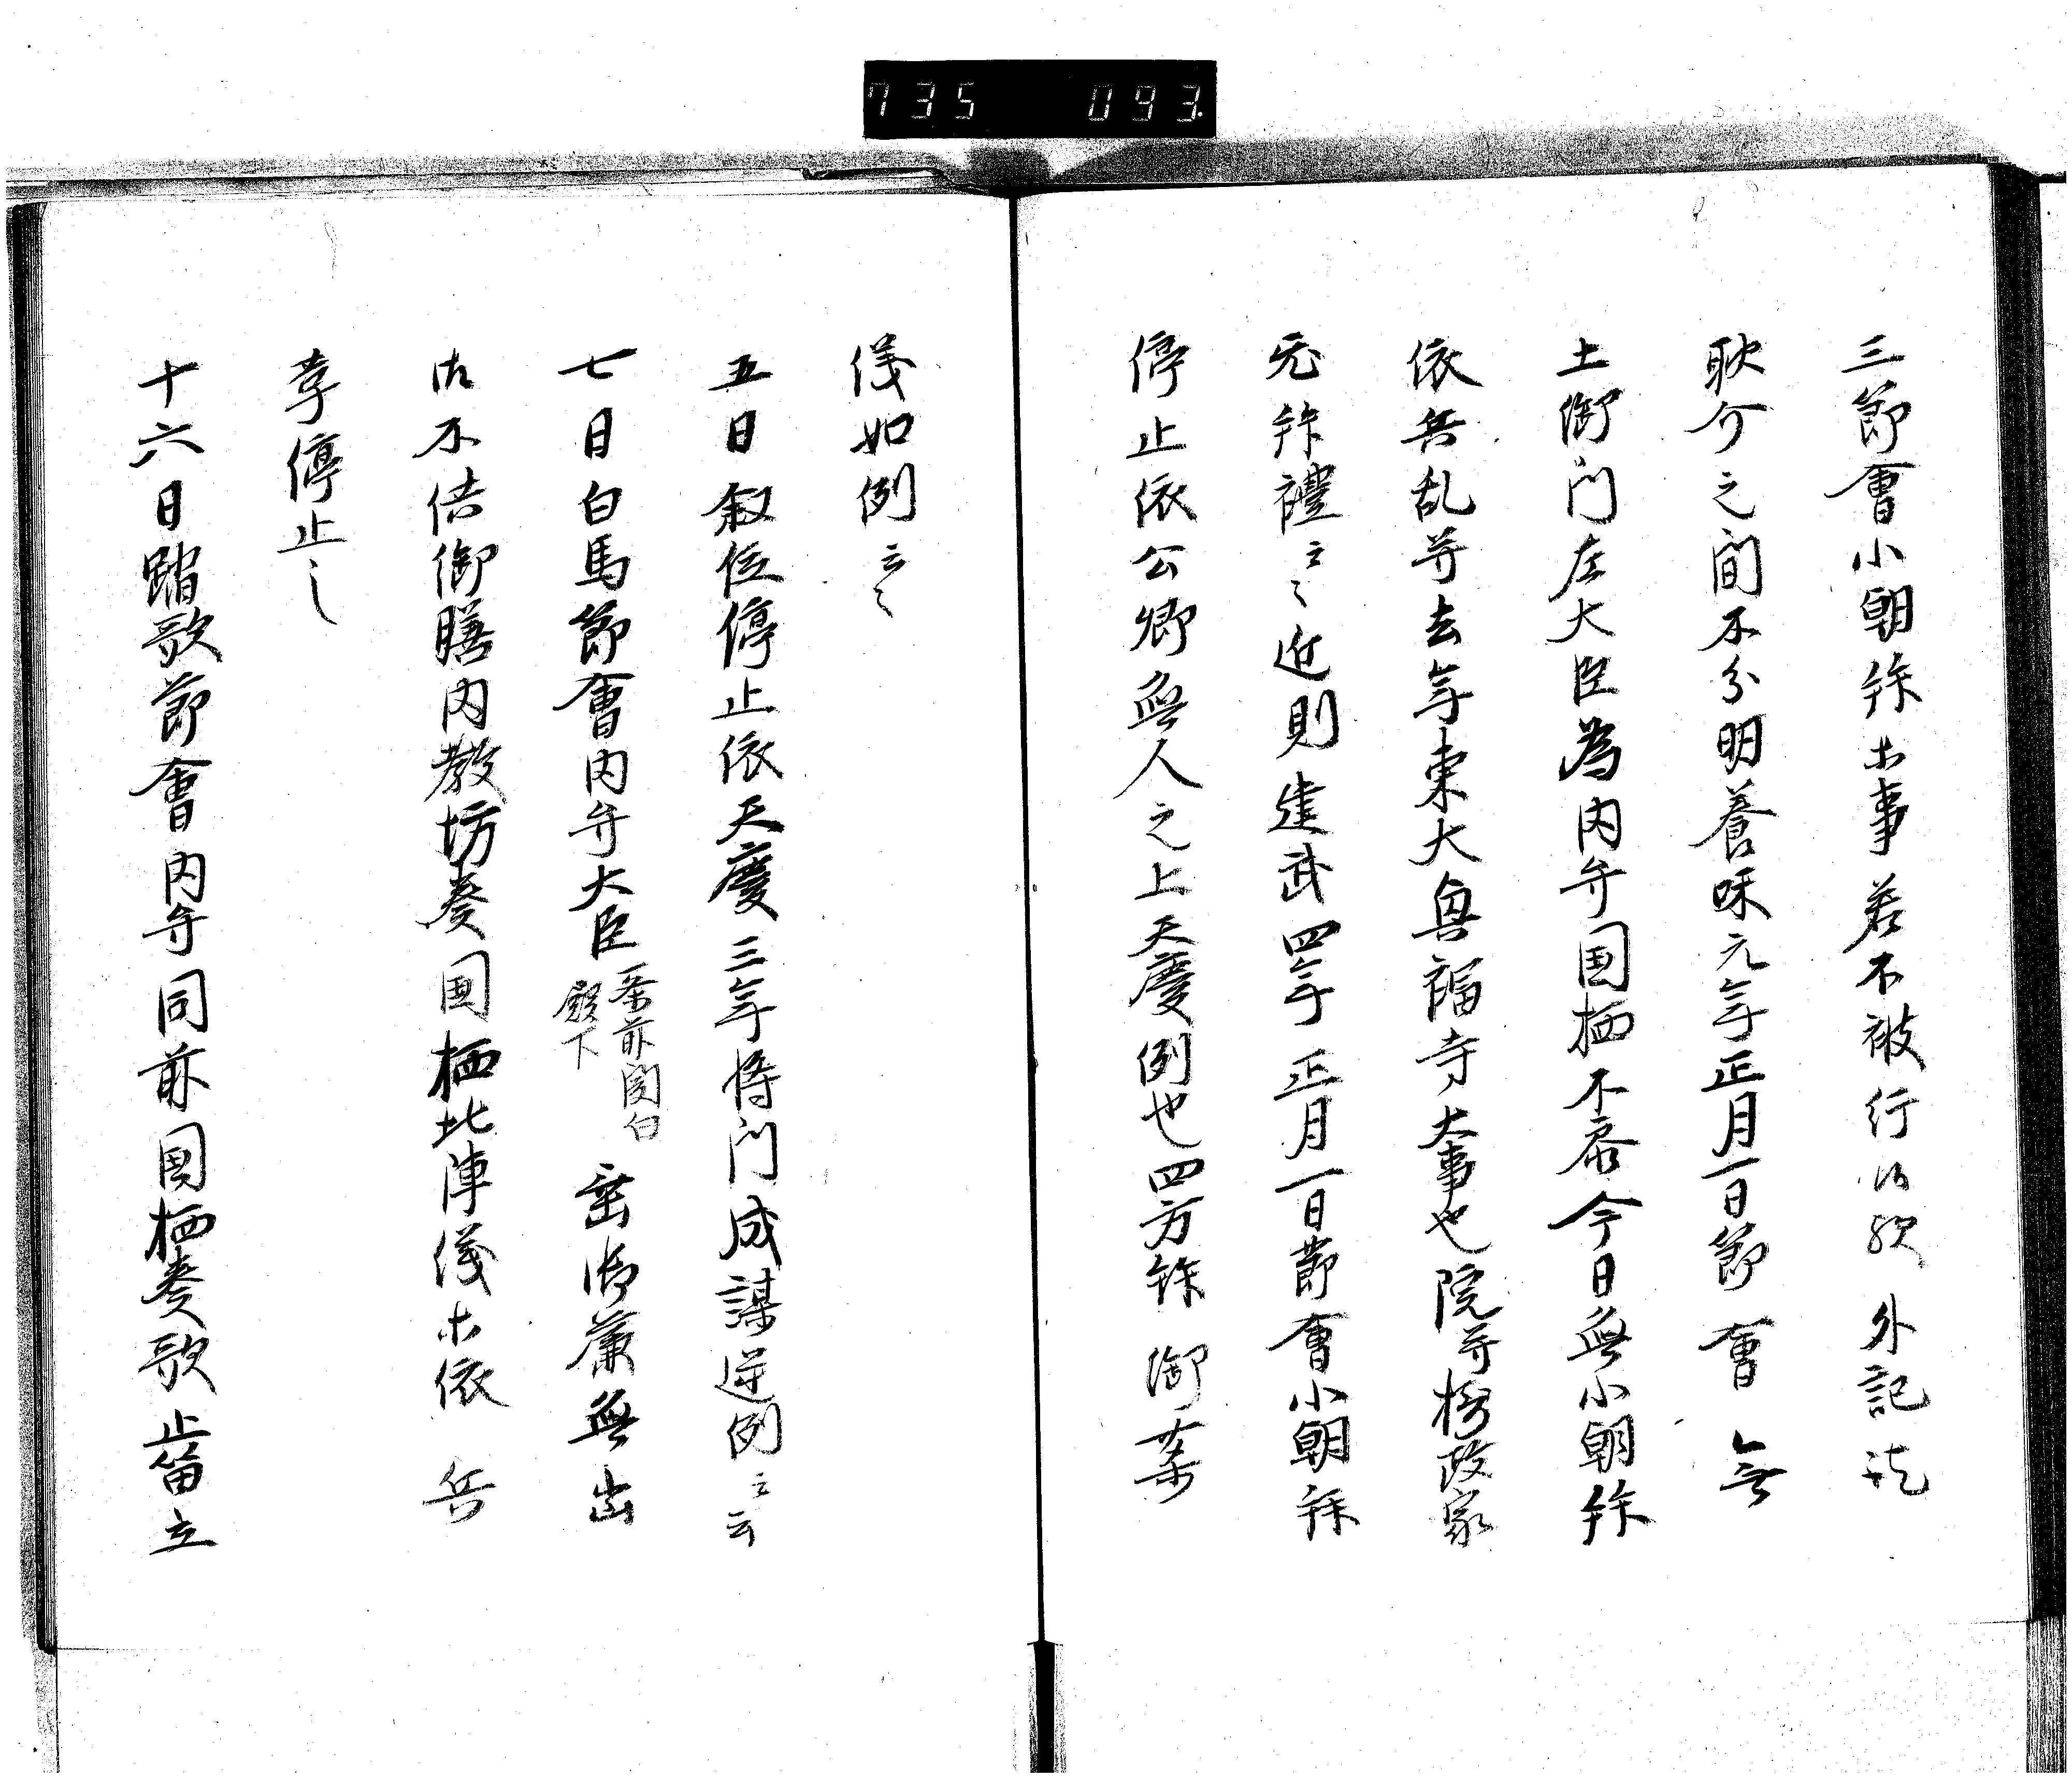 735 093
三節會小朝拜木事若不被行候歟外記注
耿介之間不分明養和元年正月一日節會無
土御門左大臣為内弁国栖不参今日無小朝拜
依兵乱并去年東大興福寺大事也院并攝政家
无拜禮云々近則建武四年正月一日節會小朝拜
停止依公卿無人之上天慶例也四方拜御薬
儀如例云々
五日叙位停止依天慶三年将門成謀逆例云云
七日白馬節會内弁大臣一条前関白殿下垂御簾無出
御不供御膳内教坊奏国栖北陣儀木依兵
革停止之
十六日踏歌節會内弁同前国栖奏歌止笛立